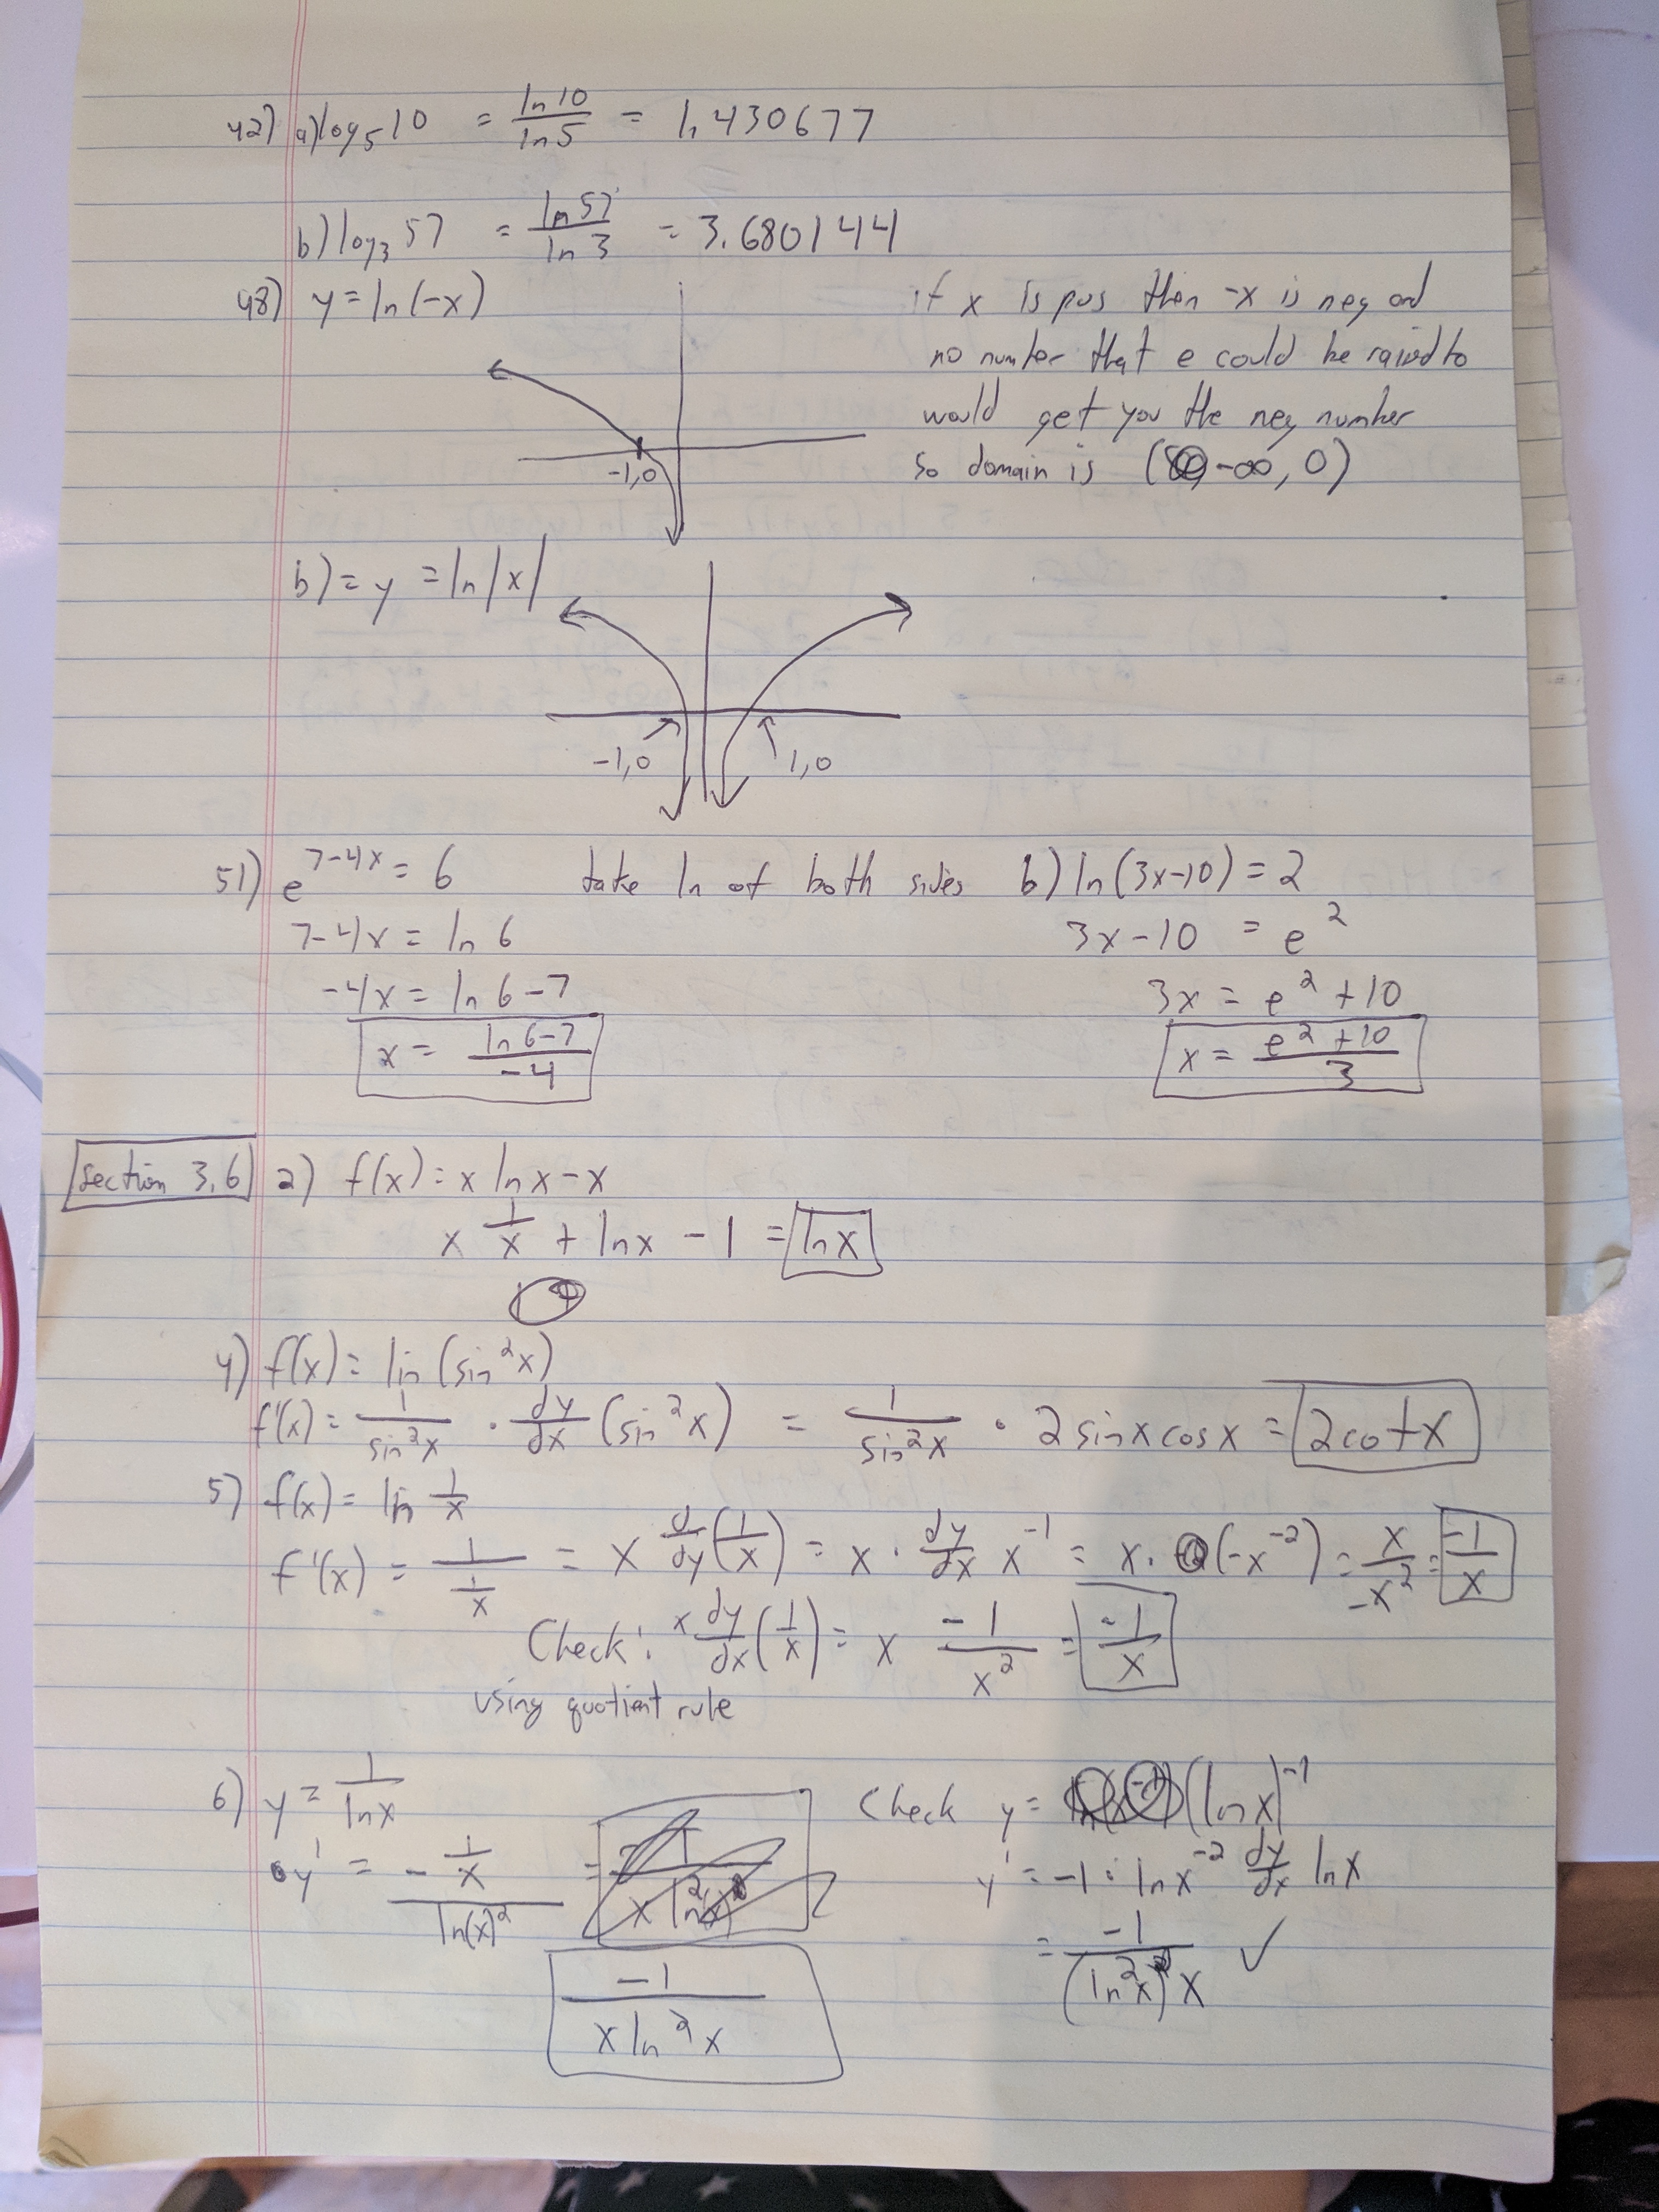 42) a) log₅10 = ln 10 / ln 5 = 1.430677
b) log₃ 57 = ln 57 / ln 3 = 3.680144
48) y = ln(-x)
if x is pos then -x is neg and
no number that e could be raised to
would get you the neg number
so domain is (-∞, 0)
-1,0
b) = y = ln|x|
-1,0 1,0
51) e^(7-4x) = 6 take ln of both sides b) ln(3x-10) = 2
7-4x = ln 6 3x-10 = e²
-4x = ln 6-7 3x = e² + 10
x = (ln 6-7) / -4 x = (e² + 10) / 3
Section 3.6 2) f(x) = x ln x - x
x 1/x + ln x - 1 = ln x
4) f(x) = ln (sin²x)
f'(x) = 1/sin²x · dy/dx (sin²x) = 1/sin²x · 2 sin x cos x = 2 cot x
5) f(x) = ln 1/x
f'(x) = 1/(1/x) = x d/dy (1/x) = x · dy/dx x⁻¹ = x · (-x⁻²) = x/-x² = -1/x
Check: x dy/dx (1/x) = x -1/x² = -1/x
using quotient rule
6) y = 1/ln x Check y = (ln x)⁻¹
y' = - (1/x) / ln(x)² = y' = -1 · ln x⁻² dy/dx ln x
-1 / x ln²x = -1 / (ln²x) x ✓